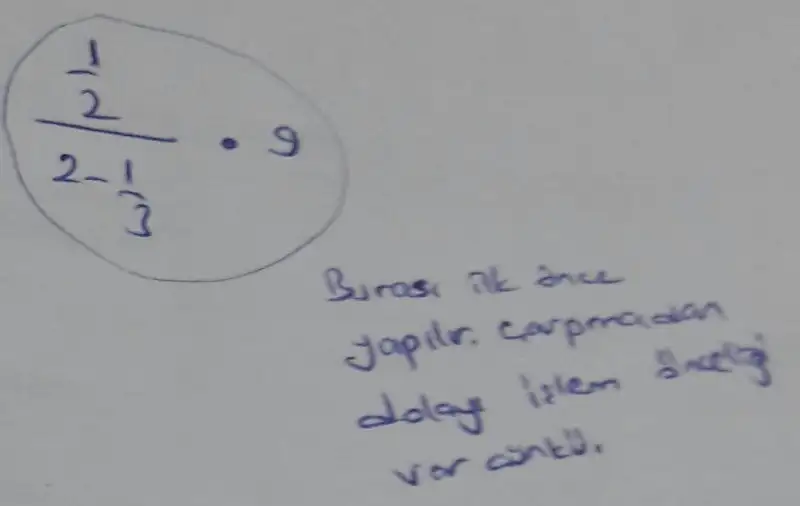 1
2
2 - 1
3
· 9
Burası ilk önce
yapılır. Çarpmadan
dolayı işlem önceliği
var çünkü.